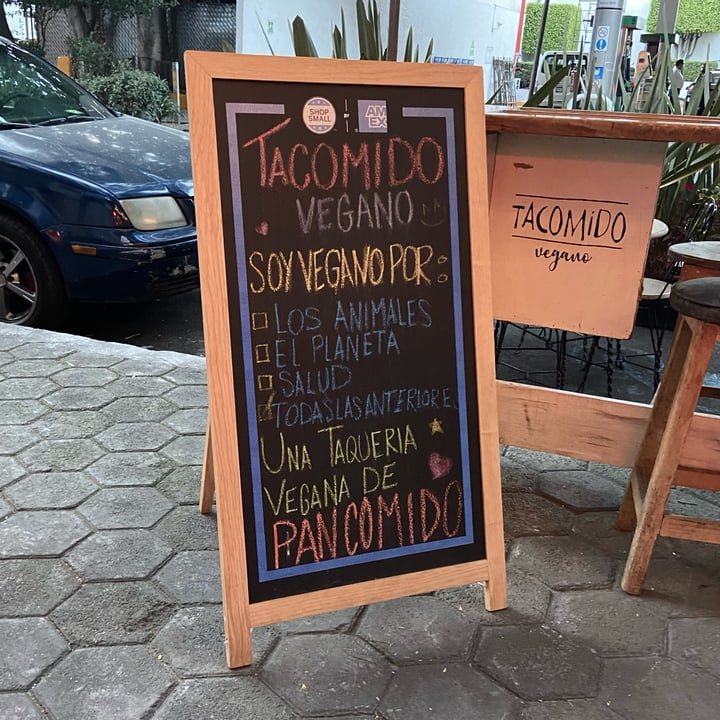 SHOP
SMALL
AM
EX
TACOMIDO
VEGANO
SOY VEGANO POR:
LOS ANIMALES
EL PLANETA
SALUD
TODAS LAS ANTERIORE
UNA TAQUERIA
VEGANA DE
PAN COMIDO
TACOMiDO
vegano